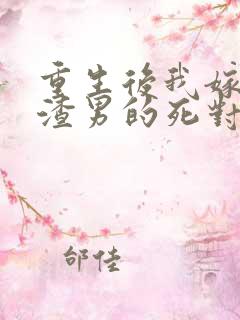 重生後我嫁
渣男的死對
邰佳